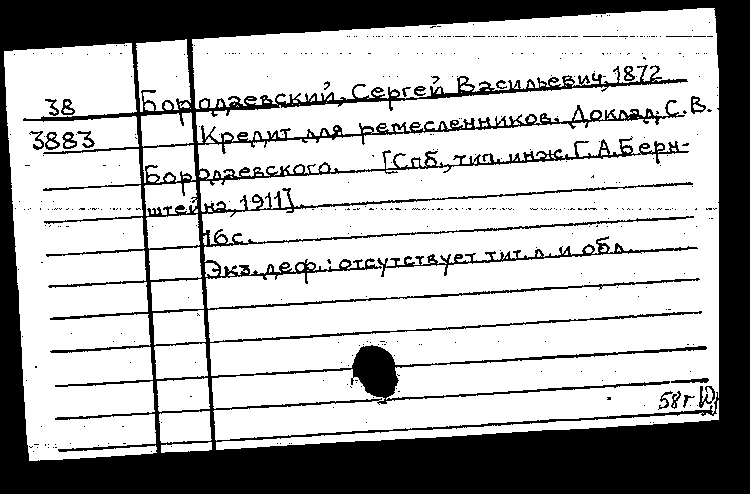 38 Бородаевский, Сергей Васильевич, 1872
3883 Кредит для ремесленников. Доклад С. В.
Бородаевского. [Спб., тип. инж. Г. А. Берн-
штейна, 1911].
16 с.
Экз. деф.: отсутствует тит. л. и обл.
58г